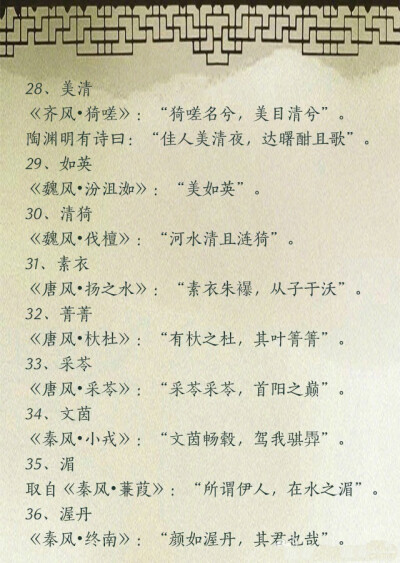 28、美清
《齐风•猗嗟》：“猗嗟名兮，美目清兮”。
陶渊明有诗曰：“佳人美清夜，达曙酣且歌”。
29、如英
《魏风•汾沮洳》：“美如英”。
30、清猗
《魏风•伐檀》：“河水清且涟猗”。
31、素衣
《唐风•扬之水》：“素衣朱襮，从子于沃”。
32、菁菁
《唐风•杕杜》：“有杕之杜，其叶菁菁”。
33、采苓
《唐风•采苓》：“采苓采苓，首阳之巅”。
34、文茵
《秦风•小戎》：“文茵畅毂，驾我骐馵”。
35、湄
取自《秦风•蒹葭》：“所谓伊人，在水之湄”。
36、渥丹
《秦风•终南》：“颜如渥丹，其君也哉”。